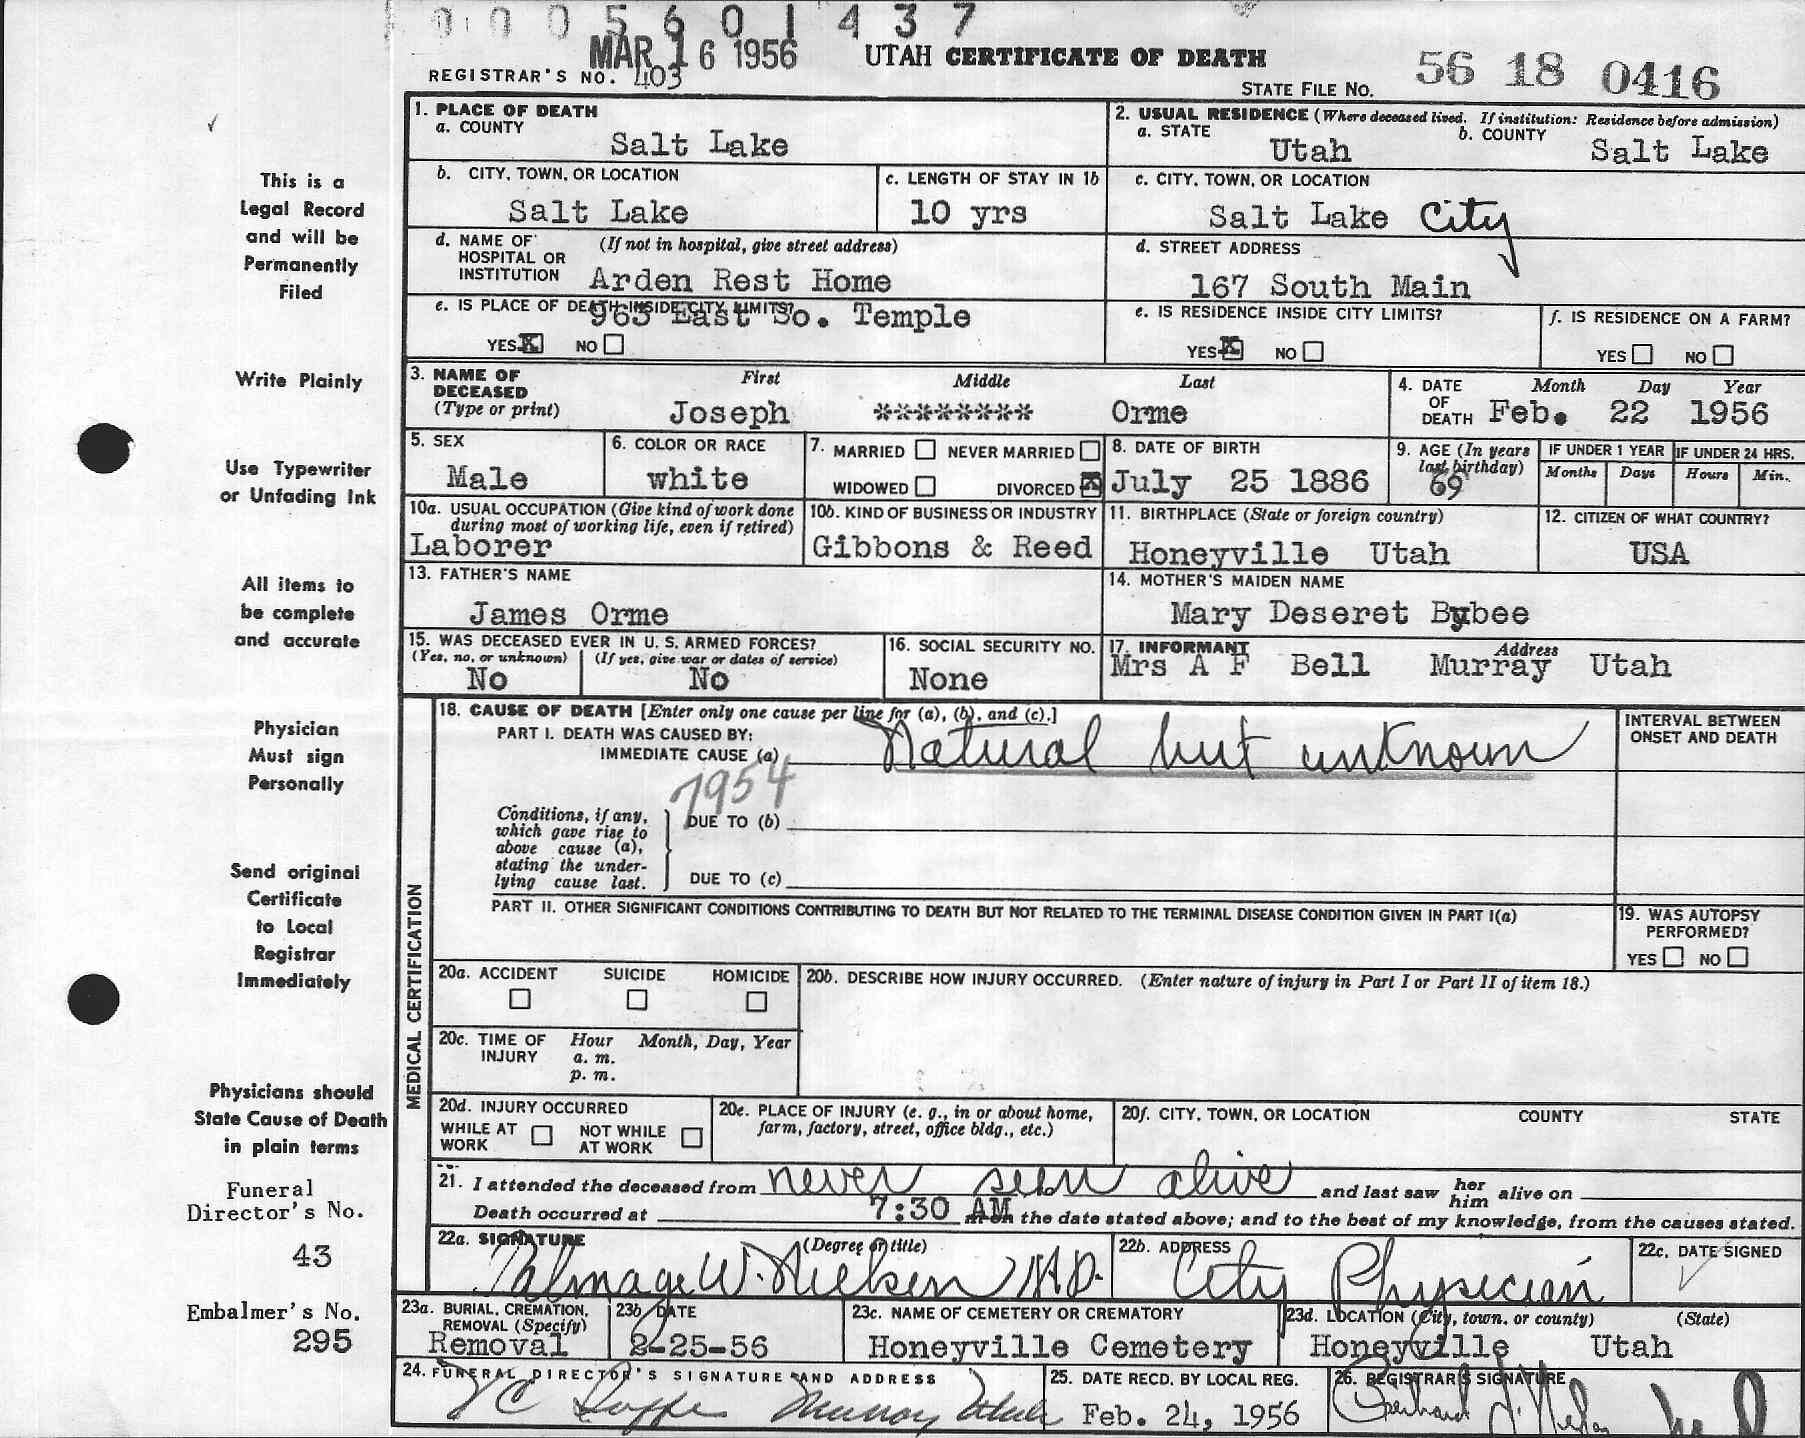 0005601437
MAR 16 1956
UTAH CERTIFICATE OF DEATH
REGISTRAR'S NO. 403
STATE FILE NO. 56 18 0416
This is a
Legal Record
and will be
Permanently
Filed
Write Plainly
Use Typewriter
or Unfading Ink
All items to
be complete
and accurate
Physician
Must sign
Personally
Send original
Certificate
to Local
Registrar
Immediately
Physicians should
State Cause of Death
in plain terms
Funeral
Director's No.
43
Embalmer's No.
295
1. PLACE OF DEATH
a. COUNTY
Salt Lake
2. USUAL RESIDENCE (Where deceased lived. If institution: Residence before admission)
a. STATE
Utah
b. COUNTY
Salt Lake
b. CITY, TOWN, OR LOCATION
Salt Lake
c. LENGTH OF STAY IN 1b
10 yrs
c. CITY, TOWN, OR LOCATION
Salt Lake City
d. NAME OF (If not in hospital, give street address)
HOSPITAL OR
INSTITUTION Arden Rest Home
d. STREET ADDRESS
167 South Main
e. IS PLACE OF DEATH INSIDE CITY LIMITS?
963 East So. Temple
YES X NO
e. IS RESIDENCE INSIDE CITY LIMITS?
YES X NO
f. IS RESIDENCE ON A FARM?
YES NO
3. NAME OF
DECEASED
(Type or print)
First Middle Last
Joseph ******** Orme
4. DATE
OF
DEATH
Month Day Year
Feb. 22 1956
5. SEX
Male
6. COLOR OR RACE
white
7. MARRIED NEVER MARRIED
WIDOWED DIVORCED X
8. DATE OF BIRTH
July 25 1886
9. AGE (In years
last birthday)
69
IF UNDER 1 YEAR
Months Days
IF UNDER 24 HRS.
Hours Min.
10a. USUAL OCCUPATION (Give kind of work done
during most of working life, even if retired)
Laborer
10b. KIND OF BUSINESS OR INDUSTRY
Gibbons & Reed
11. BIRTHPLACE (State or foreign country)
Honeyville Utah
12. CITIZEN OF WHAT COUNTRY?
USA
13. FATHER'S NAME
James Orme
14. MOTHER'S MAIDEN NAME
Mary Deseret Bybee
15. WAS DECEASED EVER IN U. S. ARMED FORCES?
(Yes, no, or unknown) (If yes, give war or dates of service)
No No
16. SOCIAL SECURITY NO.
None
17. INFORMANT Address
Mrs A F Bell Murray Utah
MEDICAL CERTIFICATION
18. CAUSE OF DEATH [Enter only one cause per line for (a), (b), and (c).]
PART I. DEATH WAS CAUSED BY:
IMMEDIATE CAUSE (a) Natural but unknown
7954
INTERVAL BETWEEN
ONSET AND DEATH
Conditions, if any,
which gave rise to
above cause (a),
stating the under-
lying cause last.
DUE TO (b)
DUE TO (c)
PART II. OTHER SIGNIFICANT CONDITIONS CONTRIBUTING TO DEATH BUT NOT RELATED TO THE TERMINAL DISEASE CONDITION GIVEN IN PART I(a)
19. WAS AUTOPSY
PERFORMED?
YES NO
20a. ACCIDENT SUICIDE HOMICIDE
20b. DESCRIBE HOW INJURY OCCURRED. (Enter nature of injury in Part I or Part II of item 18.)
20c. TIME OF
INJURY
Hour Month, Day, Year
a. m.
p. m.
20d. INJURY OCCURRED
WHILE AT
WORK
NOT WHILE
AT WORK
20e. PLACE OF INJURY (e. g., in or about home,
farm, factory, street, office bldg., etc.)
20f. CITY, TOWN, OR LOCATION COUNTY STATE
21. I attended the deceased from never seen alive and last saw her him alive on
Death occurred at 7:30 AM on the date stated above; and to the best of my knowledge, from the causes stated.
22a. SIGNATURE (Degree or title)
Talmage W. Nielsen M.D.
22b. ADDRESS
City Physician
22c. DATE SIGNED
23a. BURIAL, CREMATION,
REMOVAL (Specify)
Removal
23b. DATE
2-25-56
23c. NAME OF CEMETERY OR CREMATORY
Honeyville Cemetery
23d. LOCATION (City, town, or county) (State)
Honeyville Utah
24. FUNERAL DIRECTOR'S SIGNATURE AND ADDRESS
Murray Utah
25. DATE RECD. BY LOCAL REG.
Feb. 24, 1956
26. REGISTRAR'S SIGNATURE